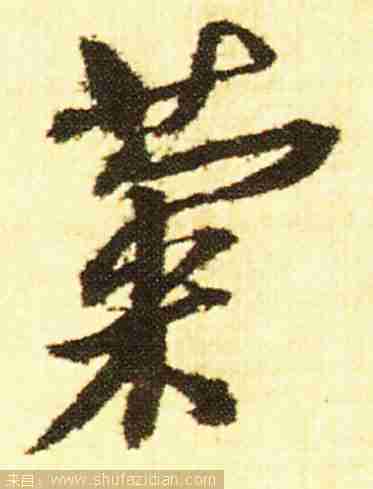 菊
来自：www.shufazidian.com